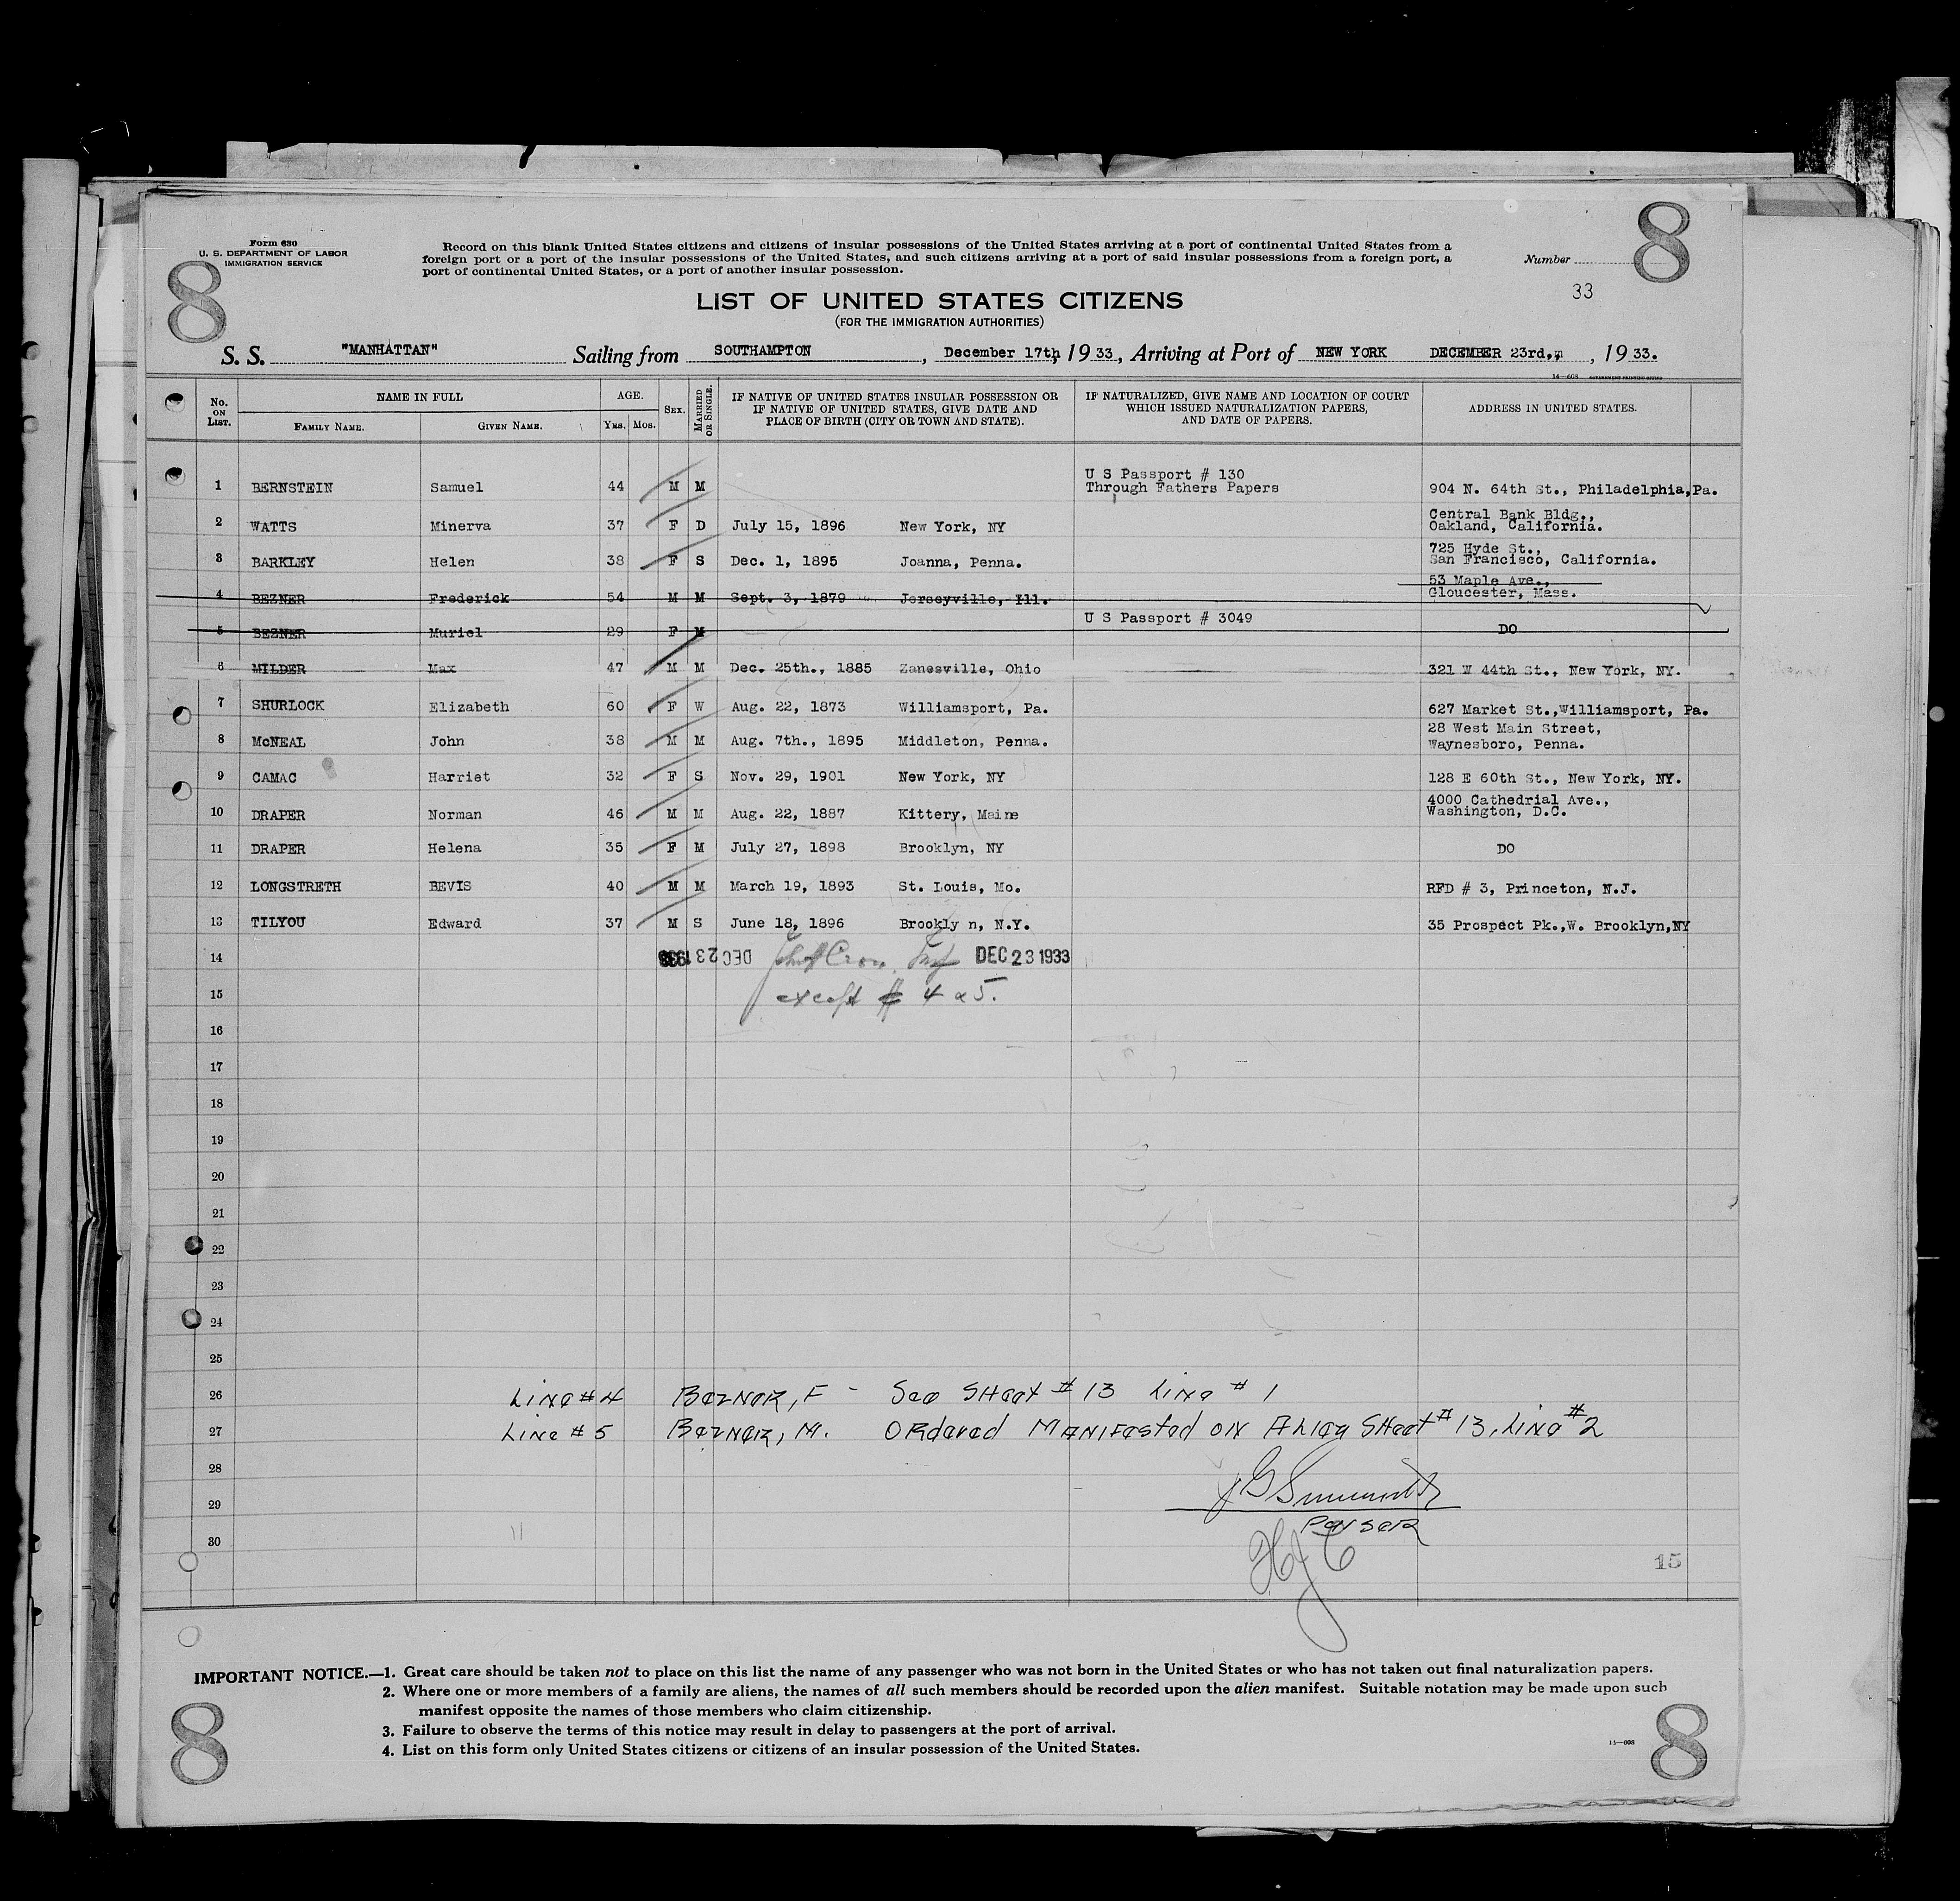 8
8
Form 630
U. S. DEPARTMENT OF LABOR
IMMIGRATION SERVICE
Record on this blank United States citizens and citizens of insular possessions of the United States arriving at a port of continental United States from a
foreign port or a port of the insular possessions of the United States, and such citizens arriving at a port of said insular possessions from a foreign port, a
port of continental United States, or a port of another insular possession.
Number
33
LIST OF UNITED STATES CITIZENS
(FOR THE IMMIGRATION AUTHORITIES)
S. S. "MANHATTAN" Sailing from SOUTHAMPTON, December 17th, 1933, Arriving at Port of NEW YORK DECEMBER 23rd., 1933.
14—608 GOVERNMENT PRINTING OFFICE
No. ON LIST. NAME IN FULL FAMILY NAME. GIVEN NAME. AGE. YRS. MOS. SEX. MARRIED OR SINGLE. IF NATIVE OF UNITED STATES INSULAR POSSESSION OR IF NATIVE OF UNITED STATES, GIVE DATE AND PLACE OF BIRTH (CITY OR TOWN AND STATE). IF NATURALIZED, GIVE NAME AND LOCATION OF COURT WHICH ISSUED NATURALIZATION PAPERS, AND DATE OF PAPERS. ADDRESS IN UNITED STATES.
1 BERNSTEIN Samuel 44 M M U S Passport # 130 Through Fathers Papers 904 N. 64th St., Philadelphia,Pa.
2 WATTS Minerva 37 F D July 15, 1896 New York, NY Central Bank Bldg., Oakland, California.
3 BARKLEY Helen 38 F S Dec. 1, 1895 Joanna, Penna. 725 Hyde St., San Francisco, California.
4 BEZNER Frederick 54 M M Sept. 3, 1879 Jerseyville, Ill. 53 Maple Ave., Gloucester, Mass.
5 BEZNER Muriel 29 F M U S Passport # 3049 DO
6 MILDER Max 47 M M Dec. 25th., 1885 Zanesville, Ohio 321 W 44th St., New York, NY.
7 SHURLOCK Elizabeth 60 F W Aug. 22, 1873 Williamsport, Pa. 627 Market St.,Williamsport, Pa.
8 McNEAL John 38 M M Aug. 7th., 1895 Middleton, Penna. 28 West Main Street, Waynesboro, Penna.
9 CAMAC Harriet 32 F S Nov. 29, 1901 New York, NY 128 E 60th St., New York, NY.
10 DRAPER Norman 46 M M Aug. 22, 1887 Kittery, Maine 4000 Cathedrial Ave., Washington, D.C.
11 DRAPER Helena 35 F M July 27, 1898 Brooklyn, NY DO
12 LONGSTRETH BEVIS 40 M M March 19, 1893 St. Louis, Mo. RFD # 3, Princeton, N.J.
13 TILYOU Edward 37 M S June 18, 1896 Brookly n, N.Y. 35 Prospect Pk.,W. Brooklyn,NY
14 DEC 23 1933 DEC 23 1933
15 except # 4 & 5.
16
17
18
19
20
21
22
23
24
25
26 Line # 4 Bezner, F - See Sheet # 13 Line # 1
27 Line # 5 Bezner, M. Ordered Manifested on Alien Sheet # 13, Line # 2
28
29
Purser
30
15
IMPORTANT NOTICE.—1. Great care should be taken not to place on this list the name of any passenger who was not born in the United States or who has not taken out final naturalization papers.
2. Where one or more members of a family are aliens, the names of all such members should be recorded upon the alien manifest. Suitable notation may be made upon such
manifest opposite the names of those members who claim citizenship.
3. Failure to observe the terms of this notice may result in delay to passengers at the port of arrival.
4. List on this form only United States citizens or citizens of an insular possession of the United States.
14—608
8
8